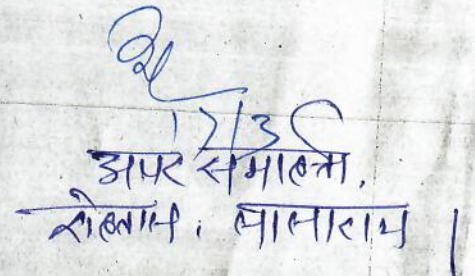 17/3
अपर समाहर्त्ता,
रोहतास, सासाराम।